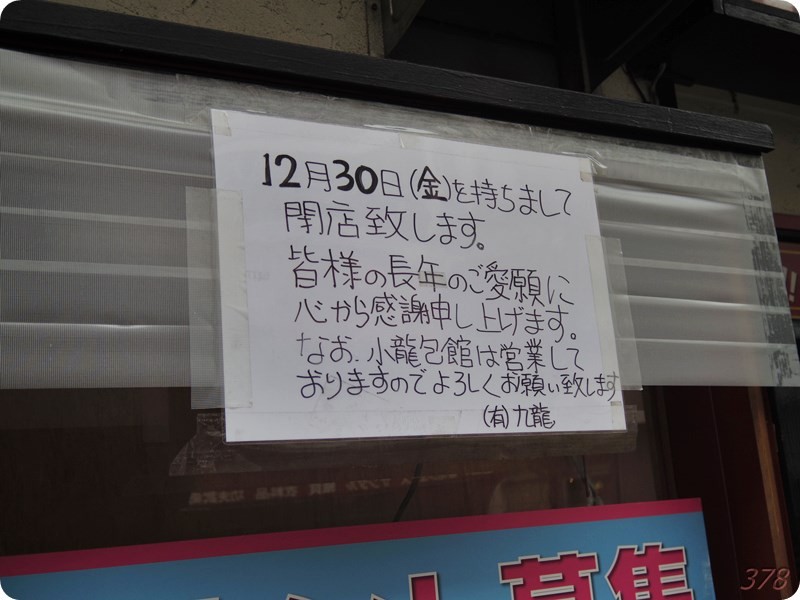 12月30日(金)を持ちまして
閉店致します。
皆様の長年のご愛願に
心から感謝申し上げます。
なお、小龍包館は営業して
おりますのでよろしくお願い致します
(有)九龍
募集
378